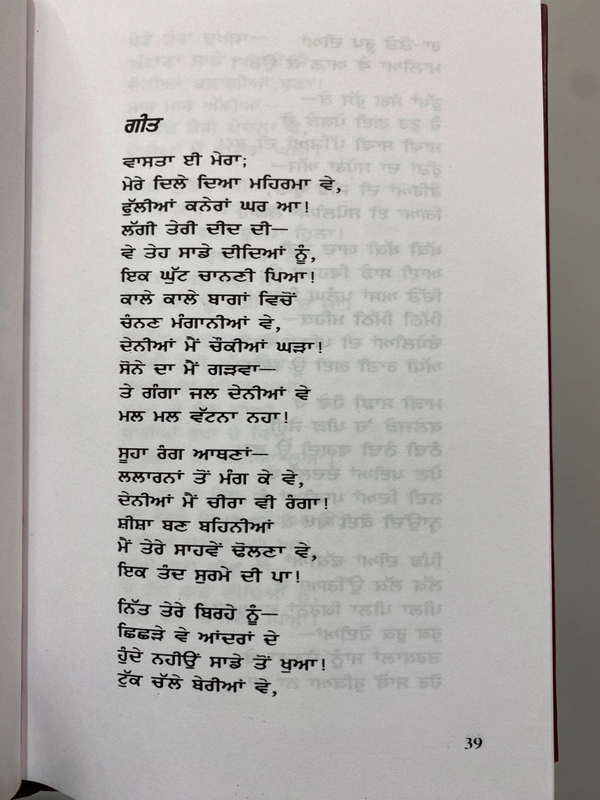 ਗੀਤ
ਵਾਸਤਾ ਈ ਮੇਰਾ;
ਮੇਰੇ ਦਿਲੇ ਦਿਆ ਮਹਿਰਮਾ ਵੇ,
ਫੁੱਲੀਆਂ ਕਨੇਰਾਂ ਘਰ ਆ!
ਲੱਗੀ ਤੇਰੀ ਦੀਦ ਦੀ—
ਵੇ ਤੇਹ ਸਾਡੇ ਦੀਦਿਆਂ ਨੂੰ,
ਇਕ ਘੁੱਟ ਚਾਨਣੀ ਪਿਆ!
ਕਾਲੇ ਕਾਲੇ ਬਾਗਾਂ ਵਿਚੋਂ
ਚੰਨਣ ਮੰਗਾਨੀਆਂ ਵੇ,
ਦੇਨੀਆਂ ਮੈਂ ਚੌਕੀਆਂ ਘੜਾ!
ਸੋਨੇ ਦਾ ਮੈਂ ਗੜਵਾ—
ਤੇ ਗੰਗਾ ਜਲ ਦੇਨੀਆਂ ਵੇ
ਮਲ ਮਲ ਵੱਟਨਾ ਨਹਾ!
ਸੂਹਾ ਰੰਗ ਆਥਣਾਂ—
ਲਲਾਰਨਾਂ ਤੋਂ ਮੰਗ ਕੇ ਵੇ,
ਦੇਨੀਆਂ ਮੈਂ ਚੀਰਾ ਵੀ ਰੰਗਾ!
ਸ਼ੀਸ਼ਾ ਬਣ ਬਹਿਨੀਆਂ
ਮੈਂ ਤੇਰੇ ਸਾਹਵੇਂ ਢੋਲਣਾ ਵੇ,
ਇਕ ਤੰਦ ਸੁਰਮੇ ਦੀ ਪਾ!
ਨਿੱਤ ਤੇਰੇ ਬਿਰਹੇ ਨੂੰ—
ਛਿਛੜੇ ਵੇ ਆਂਦਰਾਂ ਦੇ
ਹੁੰਦੇ ਨਹੀਉਂ ਸਾਡੇ ਤੋਂ ਖੁਆ!
ਟੁੱਕ ਚੱਲੇ ਬੇਰੀਆਂ ਵੇ,
39